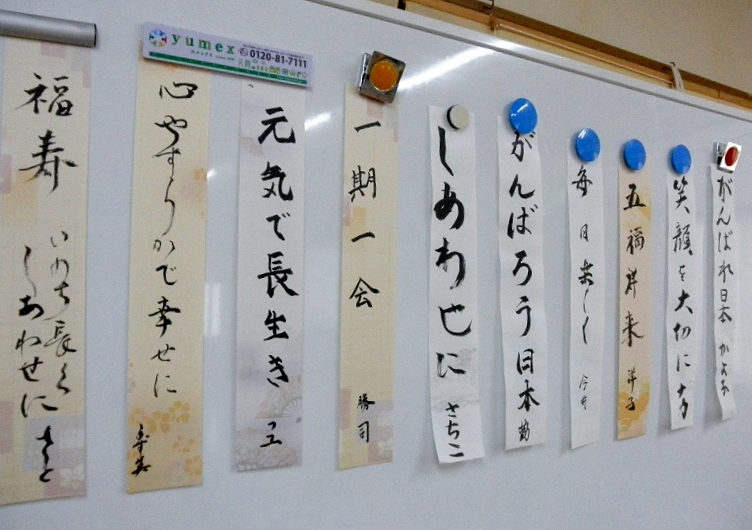 がんばれ日本
笑顔を大切にする
五福祥来 洋子
毎日楽しく 今井
がんばろう日本 勤
しあわせに さちこ
一期一会 勝司
元気で長生き
yumex
0120-81-7111
心やすらかで幸せに
福寿
いのち長く
しあわせに